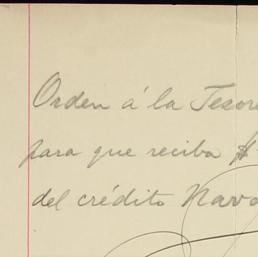 Orden á la Tesore
para que reciba $
del crédito Nava